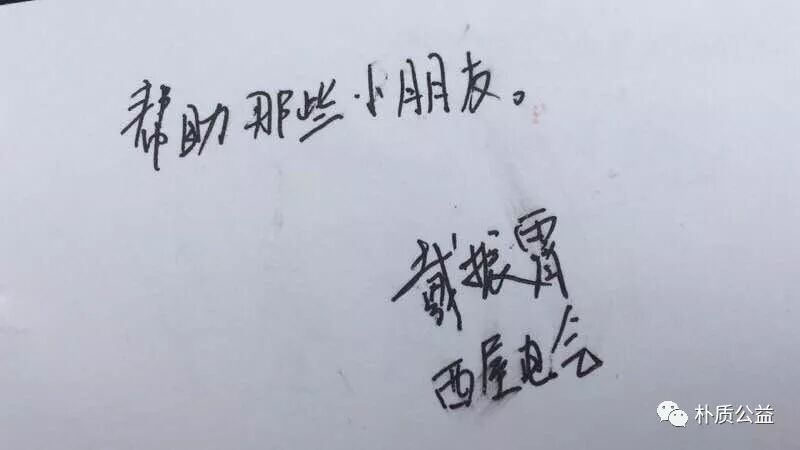 帮助那些小朋友。
戴振霄
西屋电气
朴质公益